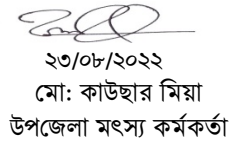 ২৩/০৮/২০২২
মো: কাউছার মিয়া
উপজেলা মৎস্য কর্মকর্তা